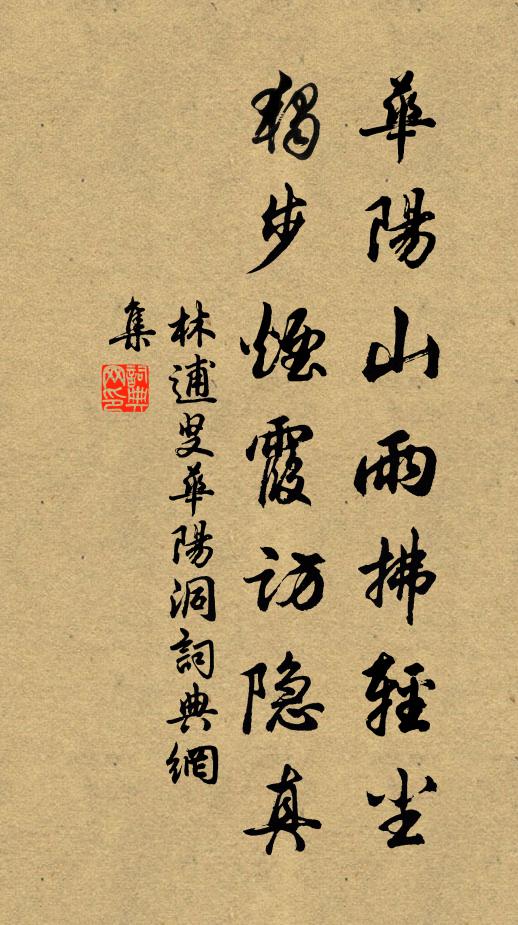 華陽山雨拂輕尘
獨步煙霞訪隐真
林逋叟華陽洞詞典網
集
詞典網印